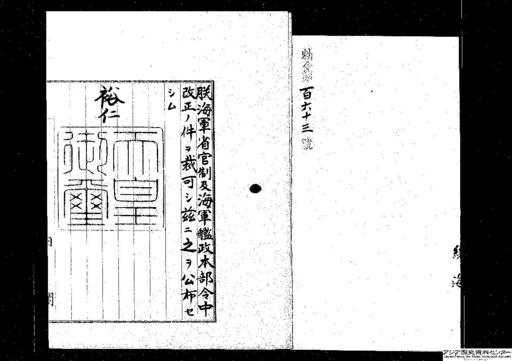 勅令第百六十三號
朕海軍省官制及海軍艦政本部令中
改正ノ件ヲ裁可シ茲ニ之ヲ公布セ
シム
裕仁
天皇
御璽
アジア歴史資料センター